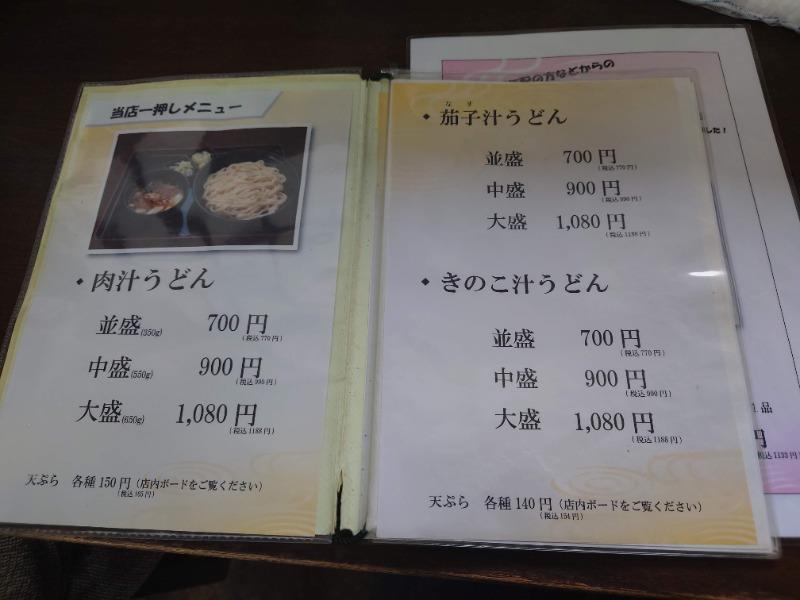 当店一押しメニュー
◆ 肉汁うどん
並盛(350g) 700円
(税込770円)
中盛(550g) 900円
(税込990円)
大盛(650g) 1,080円
(税込1188円)
天ぷら 各種150円(店内ボードをご覧ください)
(税込165円)
なす
◆ 茄子汁うどん
並盛 700円
(税込770円)
中盛 900円
(税込990円)
大盛 1,080円
(税込1188円)
◆ きのこ汁うどん
並盛 700円
(税込770円)
中盛 900円
(税込990円)
大盛 1,080円
(税込1188円)
天ぷら 各種140円(店内ボードをご覧ください)
(税込154円)
の方などからの
した!
品
円